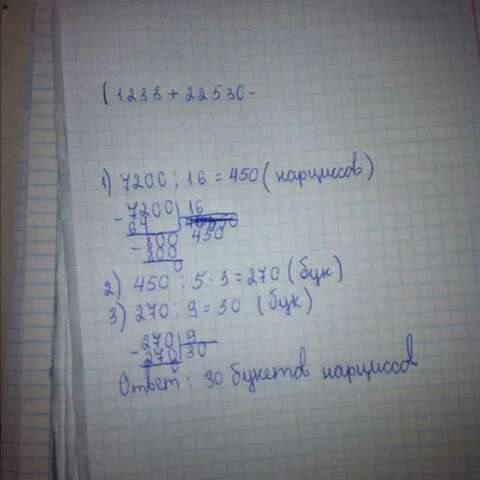 (1233 + 22530-
1) 7200 : 16 = 450 (нарциссов)
- 7200 | 16
64 450
- 800
800
0
2) 450 : 5 · 3 = 270 (бук)
3) 270 : 9 = 30 (бук)
- 270 | 9
270 30
0
Ответ: 30 букетов нарциссов